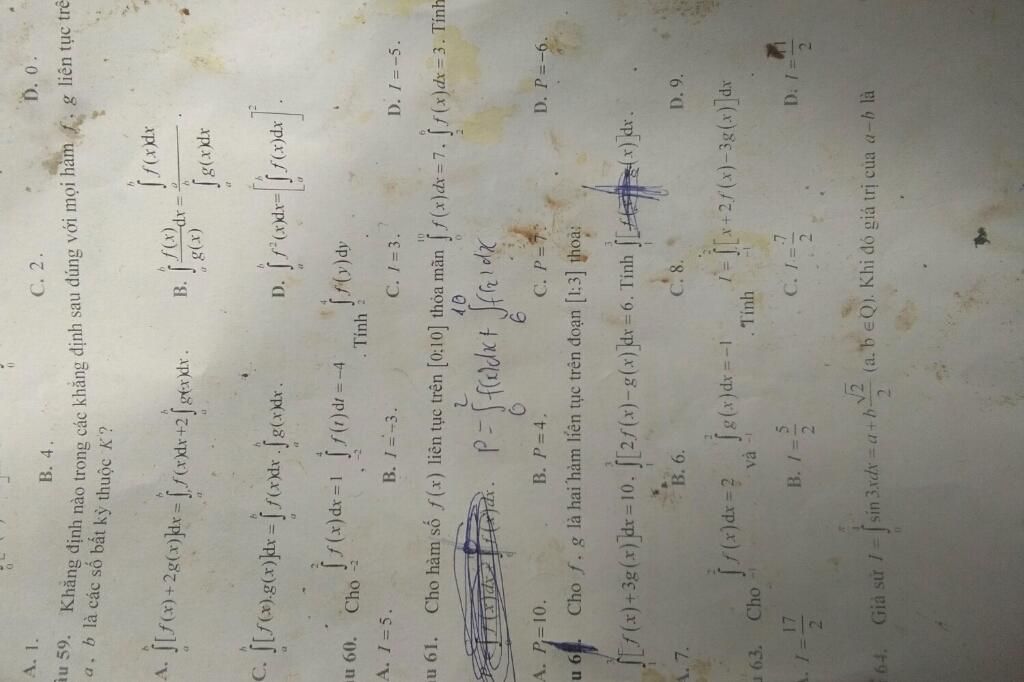 A. 1. B. 4. C. 2. D. 0.
Câu 59. Khẳng định nào trong các khẳng định sau đúng với mọi hàm f, g liên tục trê
a, b là các số bất kỳ thuộc K?
A. ∫_a^b [f(x)+2g(x)]dx = ∫_a^b f(x)dx + 2∫_a^b g(x)dx. B. ∫_a^b f(x)/g(x) dx = ∫_a^b f(x)dx / ∫_a^b g(x)dx.
C. ∫_a^b [f(x).g(x)]dx = ∫_a^b f(x)dx . ∫_a^b g(x)dx. D. ∫_a^b f²(x)dx = [∫_a^b f(x)dx]².
u 60. Cho ∫_{-2}^2 f(x)dx = 1, ∫_{-2}^4 f(t)dt = -4. Tính ∫_2^4 f(y)dy
A. I = 5. B. I = -3. C. I = 3. D. I = -5.
u 61. Cho hàm số f(x) liên tục trên [0;10] thỏa mãn ∫_0^10 f(x)dx = 7, ∫_2^6 f(x)dx = 3. Tính
P = ∫_6^2 f(x)dx + ∫_6^10 f(x)dx
A. P = 10. B. P = 4. C. P = 7. D. P = -6.
u 6 Cho f, g là hai hàm liên tục trên đoạn [1;3] thoả:
∫_1^3 [f(x)+3g(x)]dx = 10, ∫_1^3 [2f(x)-g(x)]dx = 6. Tính ∫_1^3 [f g(x)]dx.
A. 7. B. 6. C. 8. D. 9.
u 63. Cho ∫_{-1}^2 f(x)dx = 2 và ∫_{-1}^2 g(x)dx = -1. Tính I = ∫_{-1}^2 [x+2f(x)-3g(x)]dx
. I = 17/2 B. I = 5/2 C. I = 7/2 D. I = 11/2
64. Giả sử I = ∫_0^{π/4} sin3xdx = a + b√2/2 (a, b ∈ Q). Khi đó giá trị của a - b là